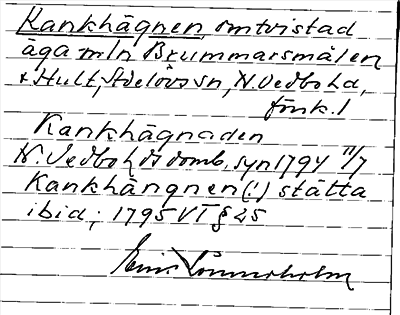 Kankhägnen, omtvistad
äga mln Brummarsmålen
& Hult, Adelövs sn, N. Vedbo hd,
Jönk. l
Kankhägnaden
N. Vedbo hd domb, syn 1794 11/7
Kankhängnen (!) stätta
ibid; 1795 VT § 25